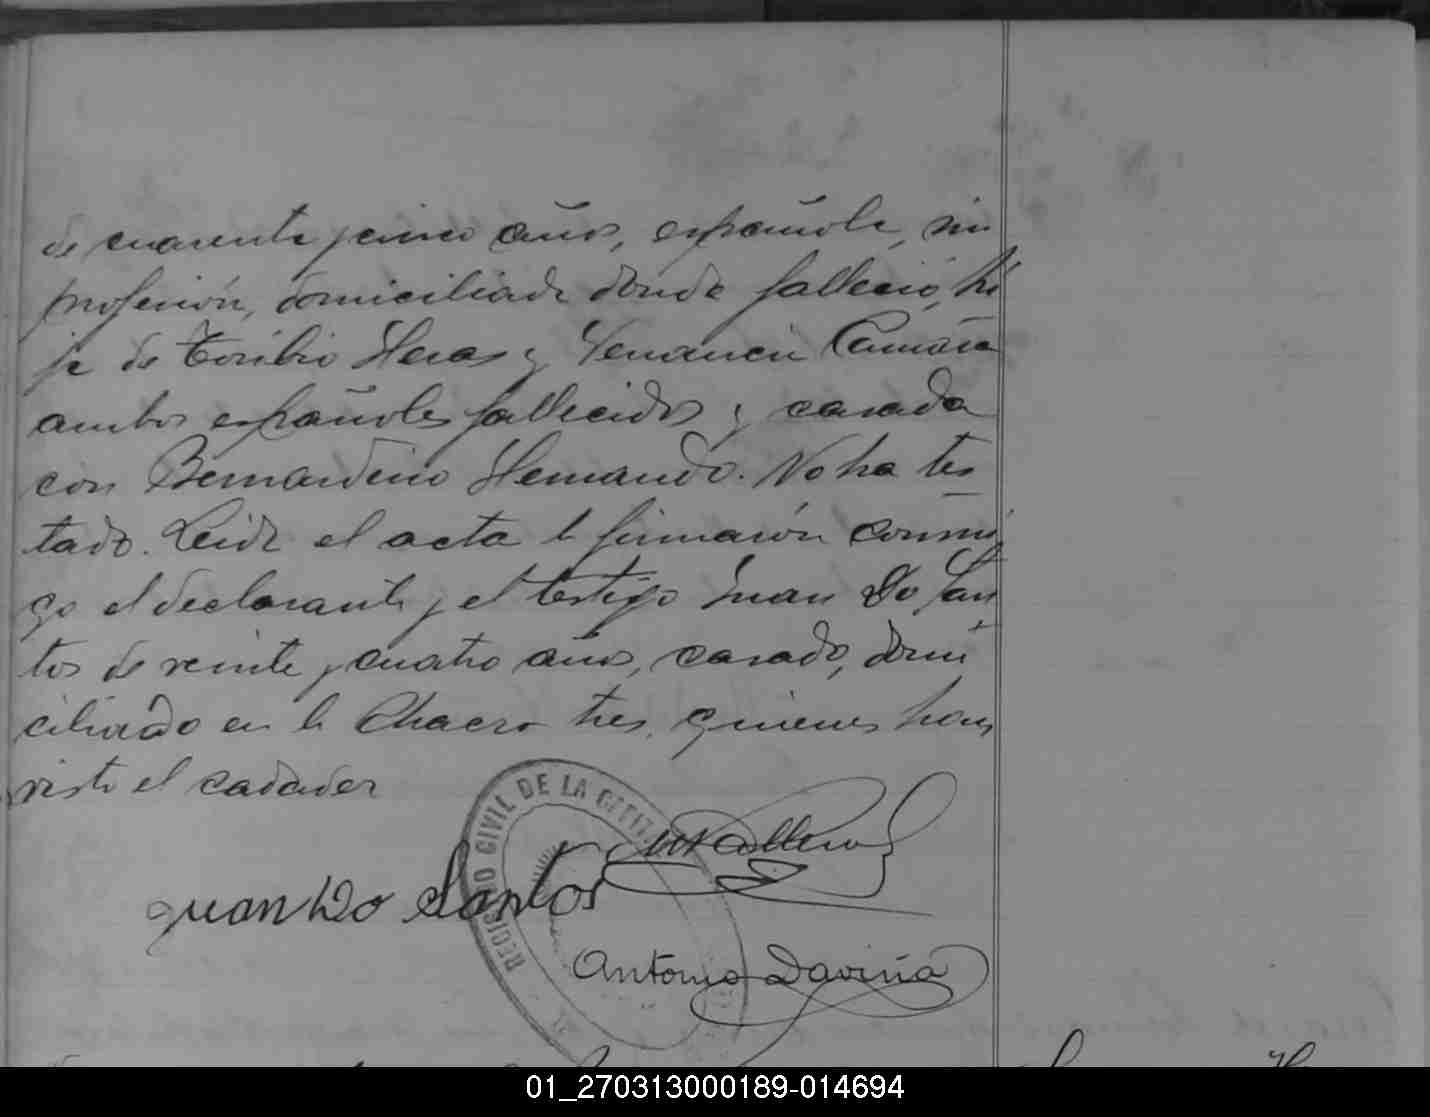 de cuarenta y cinco años, española, sin
profesión, domiciliada donde falleció, hi
ja de Toribio Heras y Venancia Camara
ambos españoles fallecidos y casada
con Bernardino Hernando. No ha tes
tado. Leida el acta la firmaron conmi
go el declarante y el testigo Juan Do San
tos de veinte y cuatro años, casado, domi
ciliado en la Chacra tres, quienes han
visto el cadaver
REGISTRO CIVIL DE LA CAPITAL
Juan Do Santos
Antonio Daviña
01_270313000189-014694